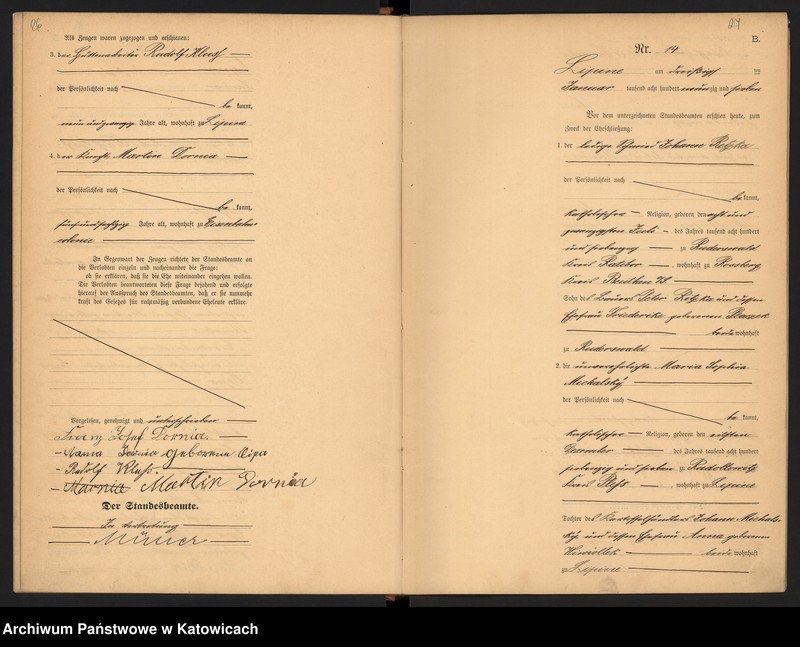 Als Zeugen waren zugezogen und erschienen:
3. der Hüttenarbeiter Rudolf Kluss
der Persönlichkeit nach
be kannt,
neun und zwanzig Jahre alt, wohnhaft zu Lipine
4. der Martin Dornia
der Persönlichkeit nach
be kannt,
fünf und Jahre alt, wohnhaft zu
colonie
In Gegenwart der Zeugen richtete der Standesbeamte an
die Verlobten einzeln und nacheinander die Frage:
ob sie erklären, daß sie die Ehe miteinander eingehen wollen.
Die Verlobten beantworteten diese Frage bejahend und erfolgte
hierauf der Ausspruch des Standesbeamten, daß er sie nunmehr
kraft des Gesetzes für rechtmäßig verbundene Eheleute erkläre.
Vorgelesen, genehmigt und unterschrieben
Franz Josef Dornia.
Dornia geborene
Rudolf Kluss.
Martin Dornia
Der Standesbeamte.
In Vertretung
27
B.
Nr. 14
Lipine am dreißigsten
Januar tausend acht hundert neunzig und sieben
Vor dem unterzeichneten Standesbeamten erschien heute, zum
Zweck der Eheschließung:
1. der ledige Johann
der Persönlichkeit nach
be kannt,
katholischer Religion, geboren den acht und
zwanzigsten Juli des Jahres tausend acht hundert
und siebenzig zu Ruderswald
Kreis Ratibor, wohnhaft zu Rossberg
Kreis Beuthen
Sohn des Peter und dessen
Ehefrau Friederike geborenen
beide wohnhaft
zu Ruderswald
2. die unverehelichte Maria Sophia
Michalsky
der Persönlichkeit nach
be kannt,
katholischer Religion, geboren den elften
Dezember des Jahres tausend acht hundert
siebenzig und sieben zu Rudoltowitz
Kreis Pless, wohnhaft zu Lipine
Tochter des Kartoffelhändlers Johann Michals-
ky und dessen Ehefrau Anna geborenen
beide wohnhaft
zu Lipine
Archiwum Państwowe w Katowicach